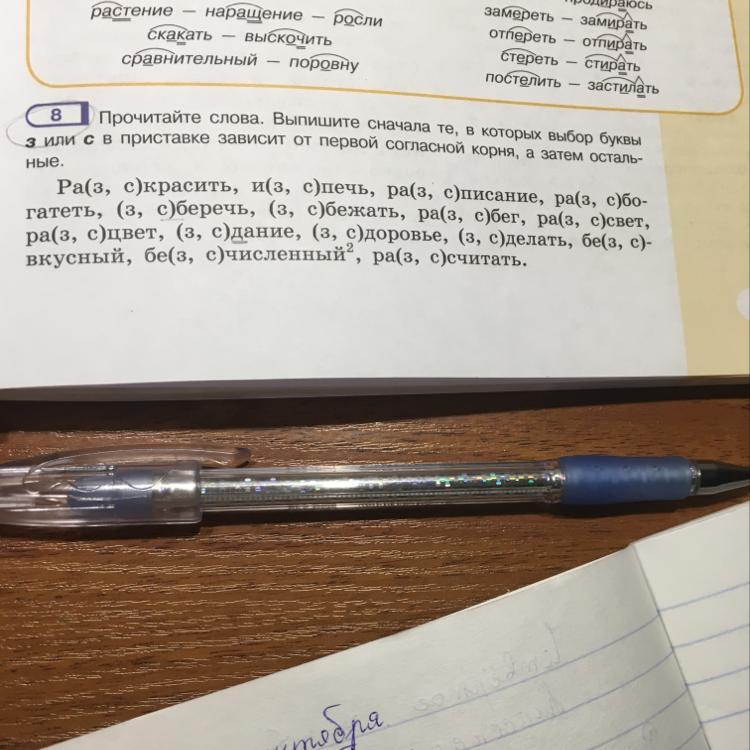 растение — наращение — росли
скакать — выскочить
сравнительный — поровну
замереть — замирать
отпереть — отпирать
стереть — стирать
постелить — застилать
8 Прочитайте слова. Выпишите сначала те, в которых выбор буквы
з или с в приставке зависит от первой согласной корня, а затем осталь-
ные.
Ра(з, с)красить, и(з, с)печь, ра(з, с)писание, ра(з, с)бо-
гатеть, (з, с)беречь, (з, с)бежать, ра(з, с)бег, ра(з, с)свет,
ра(з, с)цвет, (з, с)дание, (з, с)доровье, (з, с)делать, бе(з, с)-
вкусный, бе(з, с)численный², ра(з, с)считать.